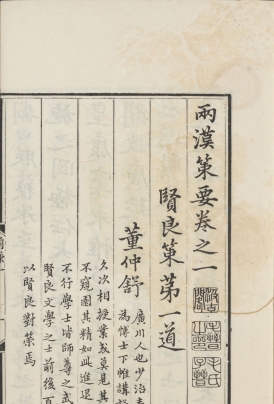 兩漢策要卷之一
賢良策第一道
董仲舒
廣川人也少治春
為博士下帷講
久次相授業或莫見其
不窺園其精如此進退
不行學士皆師尊之武
賢良文學之士前後百
以賢良對策焉